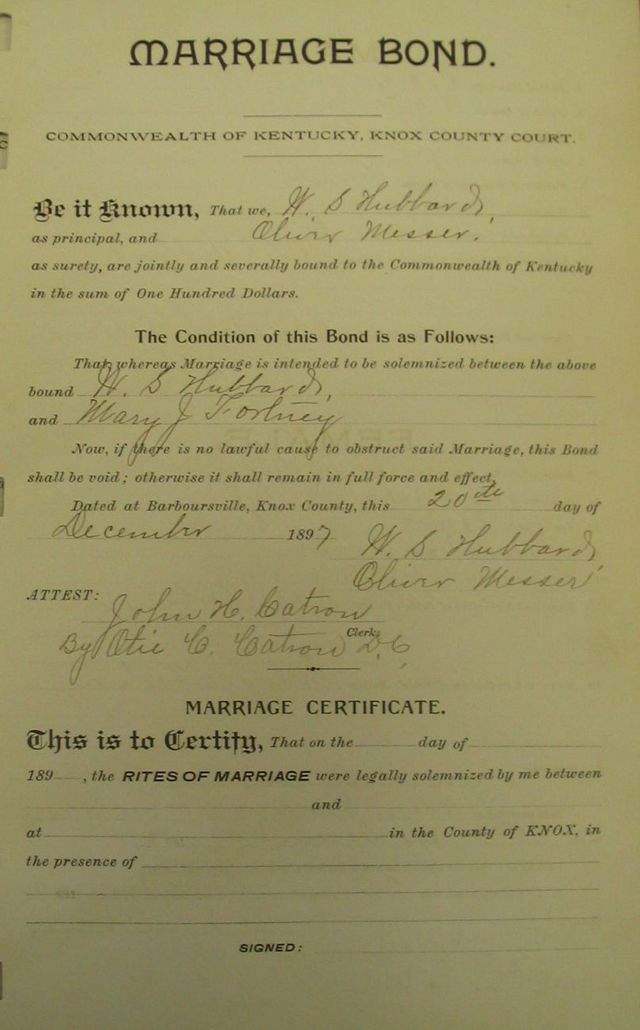 MARRIAGE BOND.
COMMONWEALTH OF KENTUCKY, KNOX COUNTY COURT.
Be it Known, That we, W. S Hubbard,
as principal, and Oliver Messer.
as surety, are jointly and severally bound to the Commonwealth of Kentucky
in the sum of One Hundred Dollars.
The Condition of this Bond is as Follows:
That whereas Marriage is intended to be solemnized between the above
bound W. S Hubbard,
and Mary J Fortney
Now, if there is no lawful cause to obstruct said Marriage, this Bond
shall be void; otherwise it shall remain in full force and effect.
Dated at Barboursville, Knox County, this 20th day of
December 1897
W. S Hubbard,
Oliver Messer
ATTEST:
John H. Catron
Clerk
By Otie C. Catron D.C,
MARRIAGE CERTIFICATE.
This is to Certify, That on the day of
189 , the RITES OF MARRIAGE were legally solemnized by me between
and
at in the County of KNOX, in
the presence of
SIGNED: